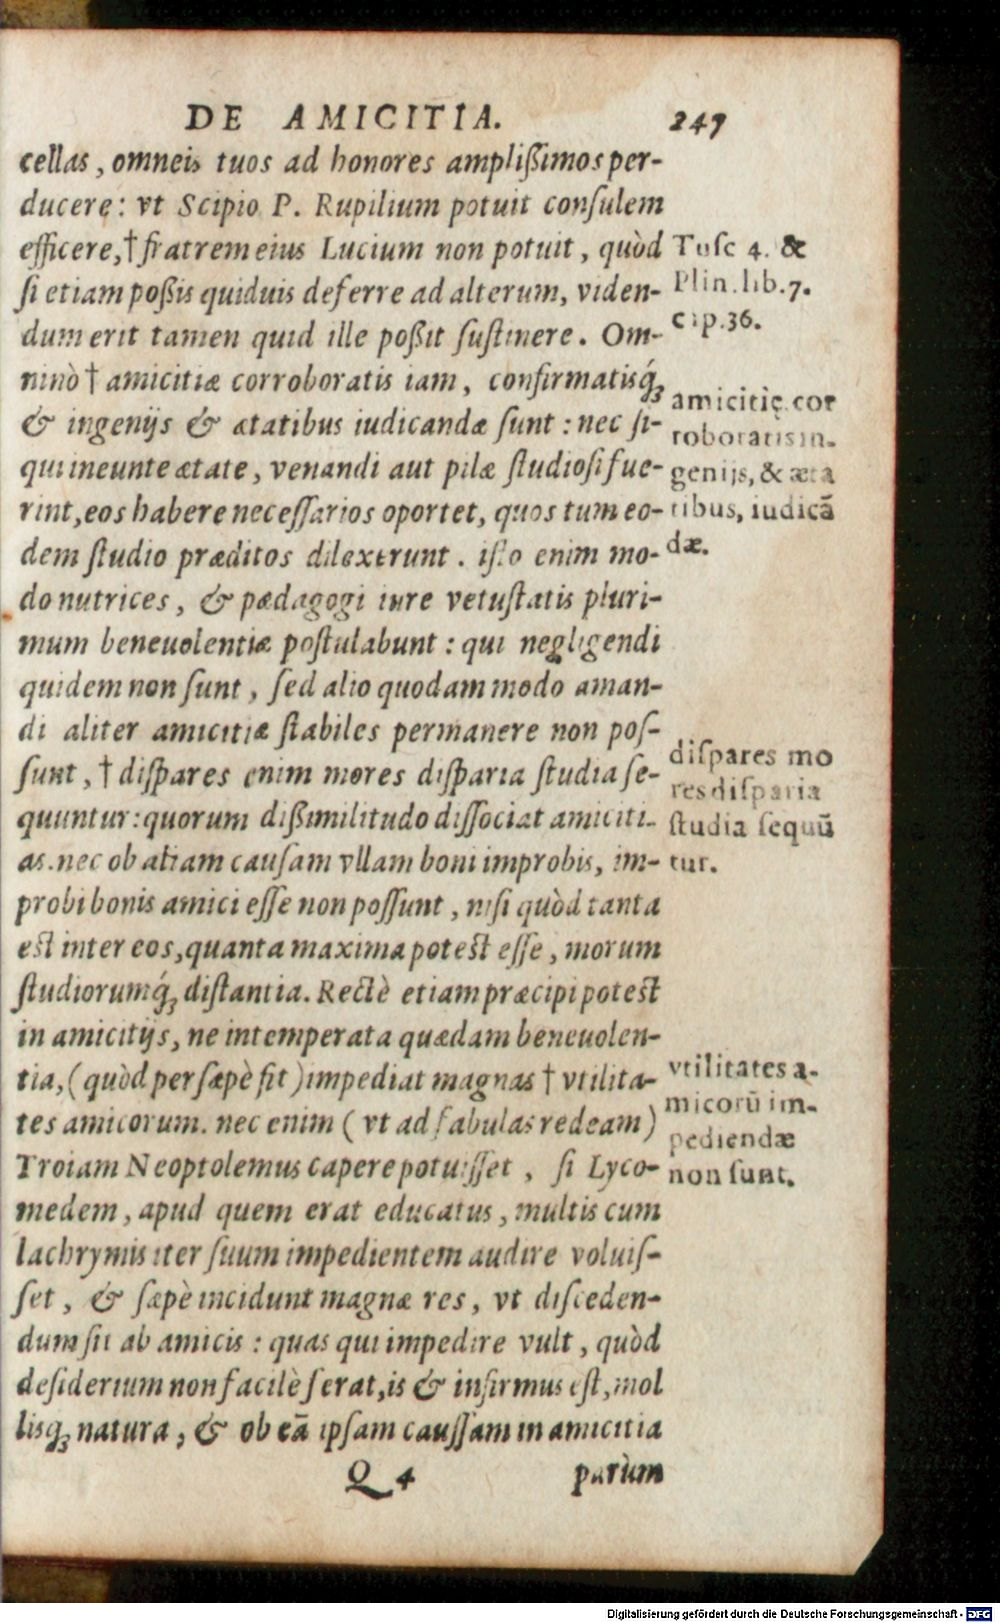 DE AMICITIA. 247
cellas, omneis tuos ad honores amplißimos per-
ducere: vt Scipio P. Rupilium potuit consulem
efficere, † fratrem eius Lucium non potuit, quòd
si etiam poßis quiduis deferre ad alterum, viden-
dum erit tamen quid ille poßit sustinere. Om-
ninò † amicitiæ corroboratis iam, confirmatisq́;
& ingenijs & ætatibus iudicandæ sunt: nec si-
qui ineunte ætate, venandi aut pilæ studiosi fue-
rint, eos habere necessarios oportet, quos tum eo-
dem studio præditos dilexerunt. isto enim mo-
do nutrices, & pædagogi iure vetustatis pluri-
mum beneuolentiæ postulabunt: qui negligendi
quidem non sunt, sed alio quodam modo aman-
di aliter amicitiæ stabiles permanere non pos-
sunt, † dispares enim mores disparia studia se-
quuntur: quorum dißimilitudo dissociat amiciti-
as. nec ob aliam causam vllam boni improbis, im-
probi bonis amici esse non possunt, nisi quòd tanta
est inter eos, quanta maxima potest esse, morum
studiorumq́; distantia. Rectè etiam præcipi potest
in amicitijs, ne intemperata quædam beneuolen-
tia, (quòd persæpè fit) impediat magnas † vtilita-
tes amicorum. nec enim (vt ad fabulas redeam)
Troiam Neoptolemus capere potuisset, si Lyco-
medem, apud quem erat educatus, multis cum
lachrymis iter suum impedientem audire voluis-
set, & sæpè incidunt magnæ res, vt disceden-
dum sit ab amicis: quas qui impedire vult, quòd
desiderium non facilè ferat, is & infirmus est, mol
lisq; natura, & ob eā ipsam caussam in amicitia
Q 4 parùm
Tusc 4. &
Plin. lib. 7.
cap. 36.
amicitię cor
roboratis in-
genijs, & æta
tibus, iudicā
dæ.
dispares mo
res disparia
studia sequū
tur.
vtilitates a-
micorū im-
pediendæ
non sunt.
Digitalisierung gefördert durch die Deutsche Forschungsgemeinschaft - DFG